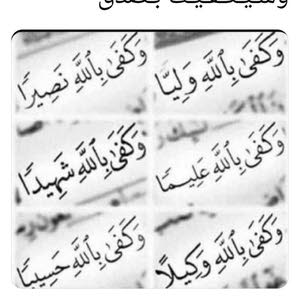 وَكَفَىٰ بِٱللَّهِ وَلِيًّا
وَكَفَىٰ بِٱللَّهِ نَصِيرًا
وَكَفَىٰ بِٱللَّهِ عَلِيمًا
وَكَفَىٰ بِٱللَّهِ شَهِيدًا
وَكَفَىٰ بِٱللَّهِ وَكِيلًا
وَكَفَىٰ بِٱللَّهِ حَسِيبًا